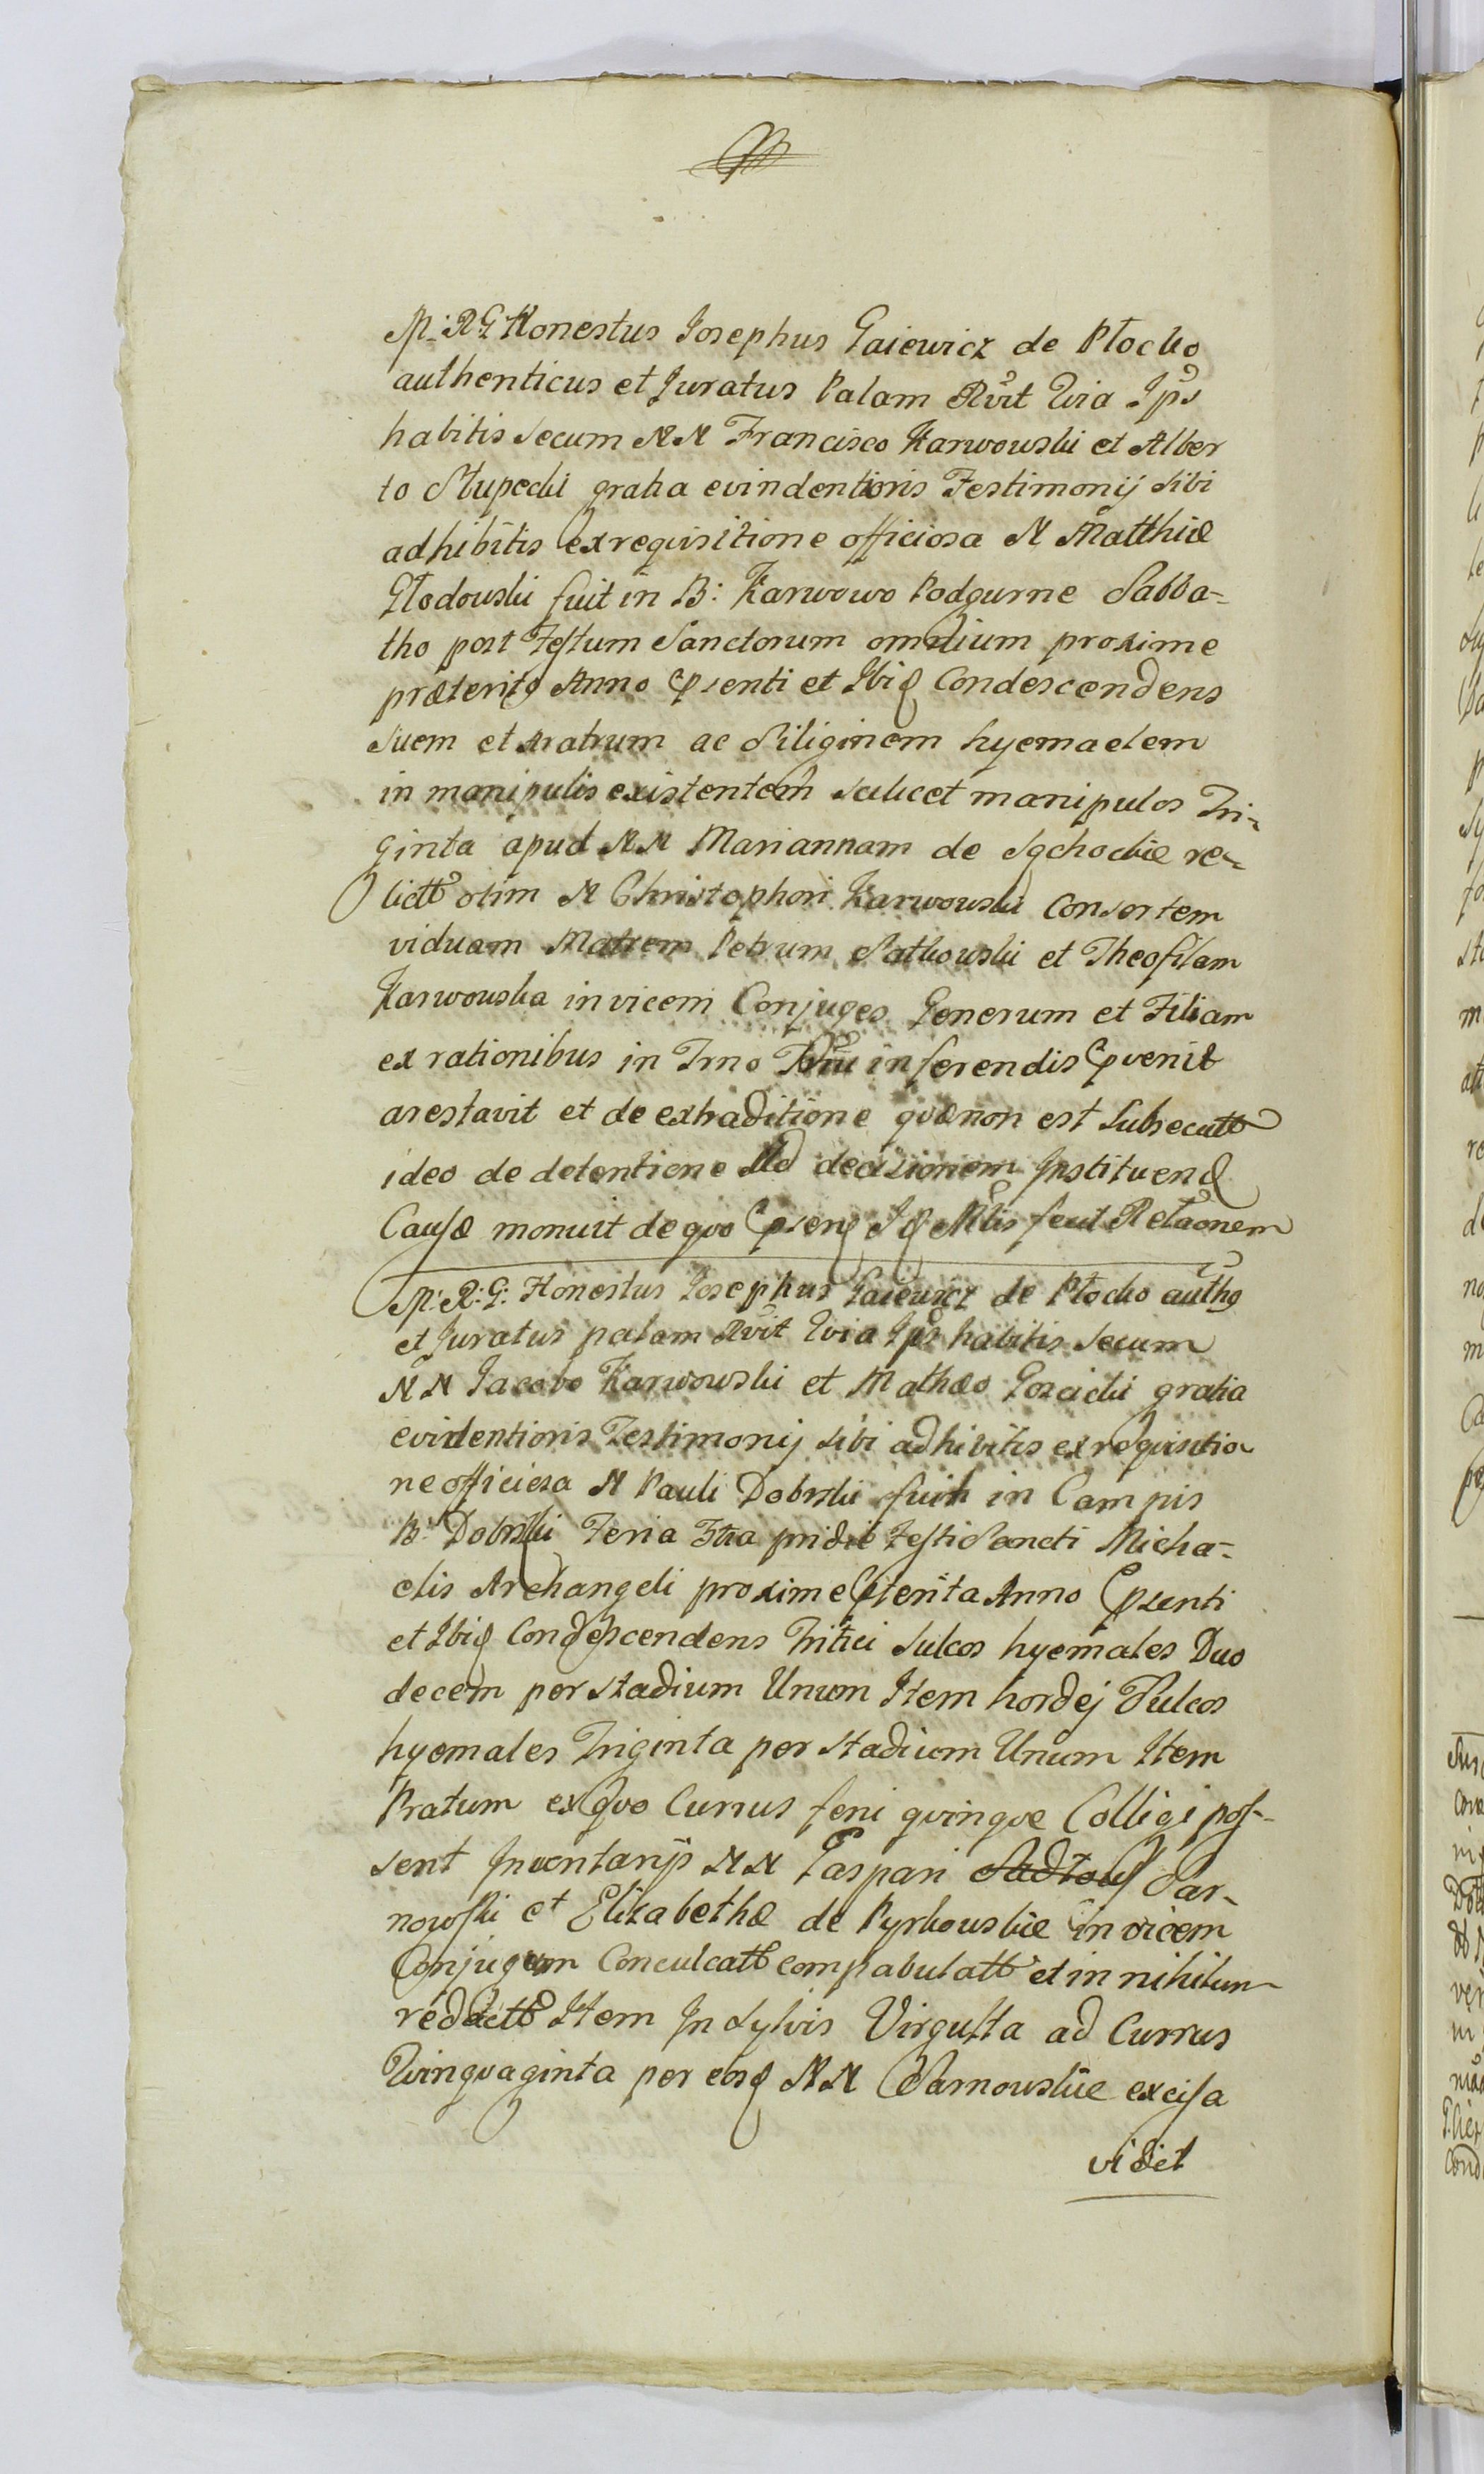 M: R: G: Honestus Josephus Gaiewicz de Płocko
authenticus et Juratus Palam Rvit Qvia Ips
habitis secum NN Francisco Karwowski et Alber
to Słupecki gratia evindentioris Testimonij sibi
adhibitis ex requisitione officiosa N Matthiæ
Głodowski fuit in B: Karwowo Podgurne Sabba-
tho post Festum Sanctorum omnium proxime
præterito Anno Psenti et Ibiq Condescendens
suem et aratrum ac Siliginem hyemaelem
in manipulis existentem scilicet manipulos Tri-
ginta apud NN Mariannam de Sąchockie re-
lictt olim N Christophori Karwowski Consortem
viduam Matrem Petrum Satkowski et Theofilam
Karwowska invicem Conjuges Generum et Filiam
ex rationibus in Trno inferendis Pvenit
arestavit et de extraditione quæ non est Subsecutt
ideo de detentione Ad decisionem Instituend
Causæ monuit de quo Psens Iq Mtis fecit Relaonem
M: R: G: Honestus Josephus Gaiewicz de Płocko autho
et Juratus palam Rvit Qvia Ips habitis secum
NN Jacobo Karwowski et Mathæo Gozdcicki gratia
evidentioris Testimonij sibi adhibitis ex requisitio
ne officiosa N Pauli Dobrski fuit in Campis
B: Dobrski Feria 3tia pridie Festi Sancti Micha-
elis Archangeli proxime Pterita Anno Psenti
et Ibiq Condescendens Tritici sulcos hyemales Duo
decem per stadium Unum Item hordej Sulcos
hyemales Triginta per stadium Unum Item
Pratum ex Quo Currus feni qvinqve Colligi pos-
sent Inventarijs NN Gaspari Sar-
nowski et Elizabethæ de Pyrkowskie invicem
Conjugum Conculcatt compabulatt et in nihilum
redactt Item In sylvis Virgulta ad Currus
Qvinqvaginta per eosq NN Sarnowskie excisa
vidit